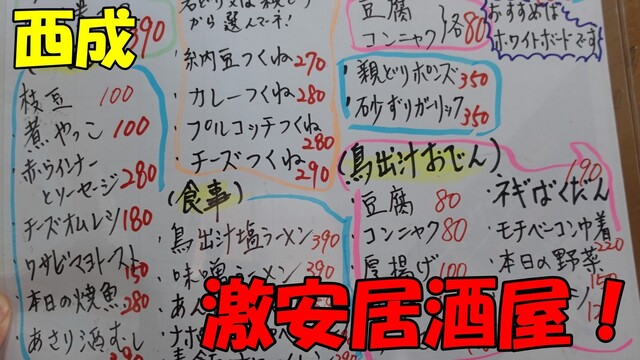 西成
390
枝豆 100
・煮やっこ 100
・赤ウインナーとソーセージ 280
・チーズオムレツ 180
・ワサビマヨトースト 150
・本日の焼魚 280
・あさり酒むし
から選んでネ!
・納豆つくね 270
・カレーつくね 280
・プルコッチつくね 280
・チーズつくね 290
(食事)
・鳥出汁塩ラーメン 390
・味噌ラーメン 390
豆腐
コンニャク 各80
おすすめは
ホワイトボードです
・親どりポンズ 350
・砂ずりガーリック 350
(鳥出汁おでん)
・豆腐 80
・コンニャク 80
・厚揚げ 100
・ネギばくだん 190
・モチベーコン巾着 220
・本日の野菜 150
激安居酒屋!